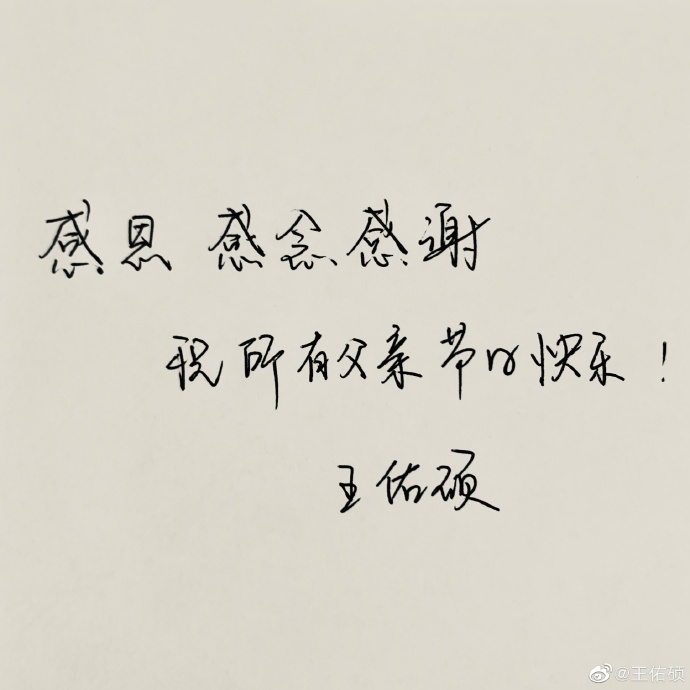 感恩 感念感谢
祝所有父亲节日快乐！
王佑硕
@王佑硕